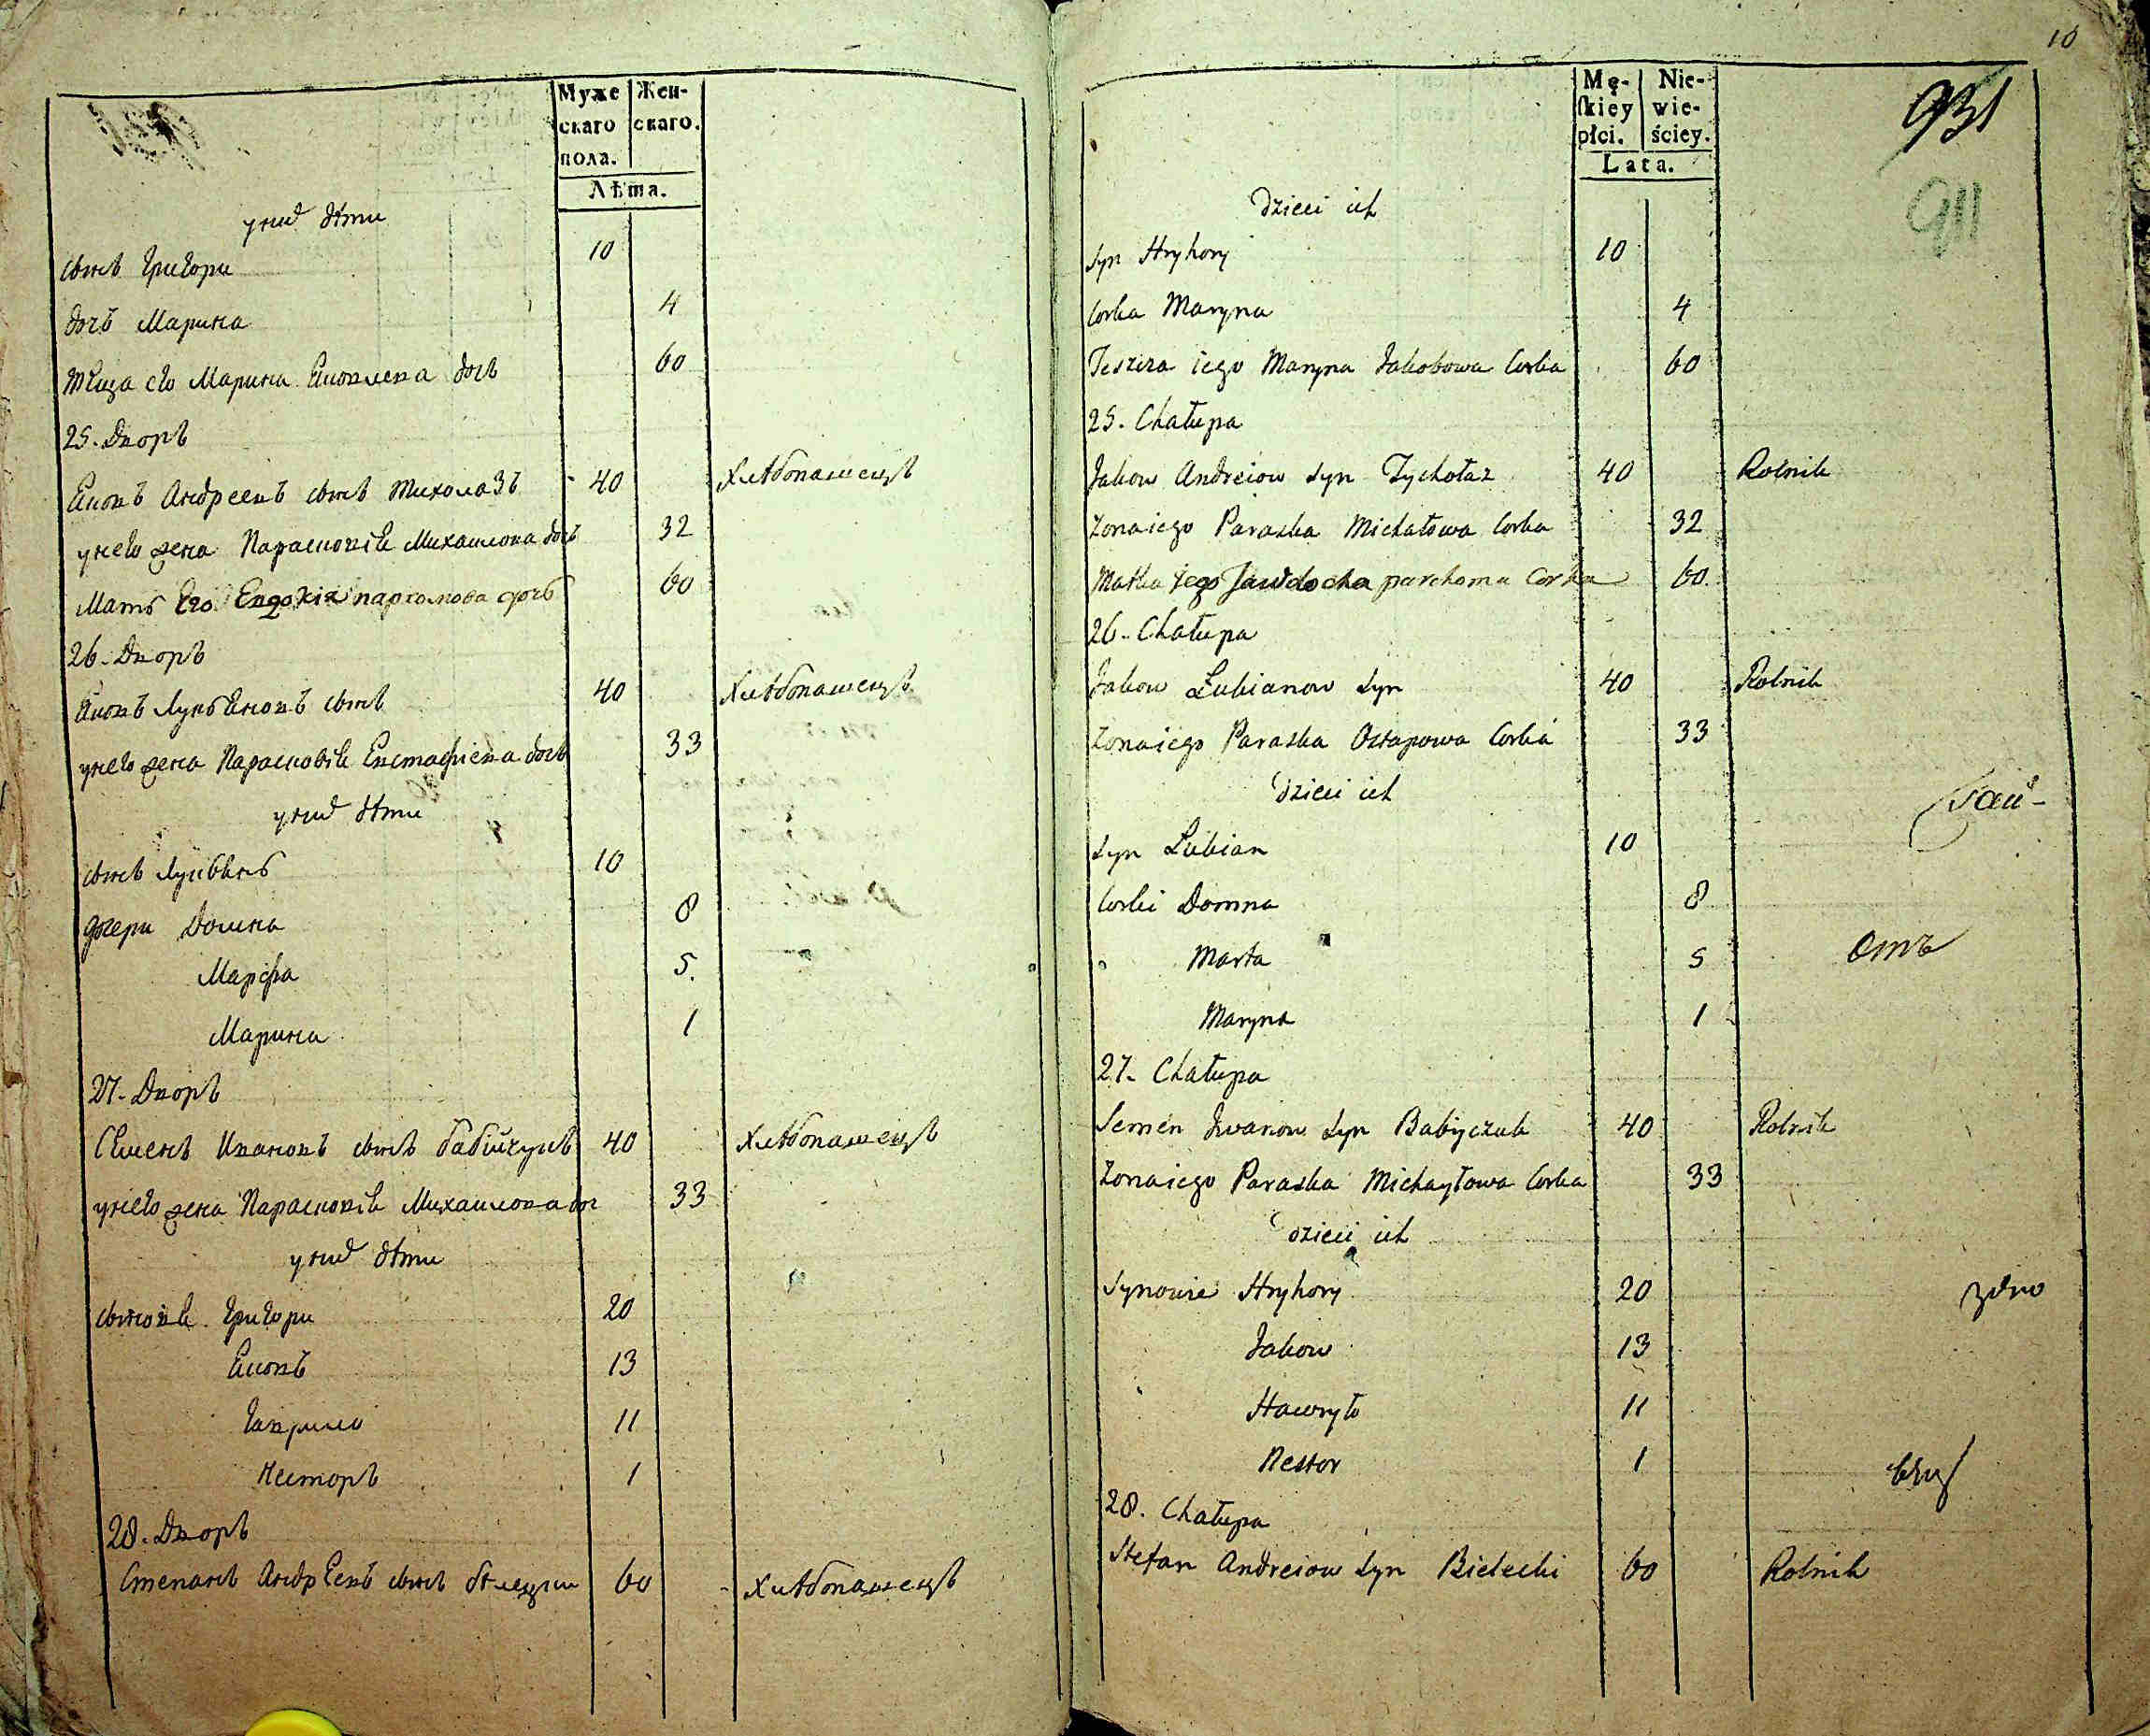 Муже Жен-
скаго скаго.
пола.
Лѣта.
у них дѣти
сынъ Григори 10
дочь Марина 4
теща его Марина Яковлева дочь 60
25. Дворъ
Яковъ Андреевъ сынъ Тихолазъ 40 Хлѣбопашецъ
у него жена Парасковія Михайлова дочь 32
Мать Его Евдокія пархомова дочь 60
26. Дворъ
Яковъ Лукьяновъ сынъ 40 Хлѣбопашецъ
у него жена Парасковія Евстафіева дочь 33
у них дѣти
сынъ Лукьянъ 10
дочери Домна 8
Марфа 5
Марина 1
27. Дворъ
Семенъ Ивановъ сынъ бабійчукъ 40 Хлѣбопашецъ
у него жена Парасковія Михайлова доч 33
у них дѣти
сыновья Григори 20
Яковъ 13
Гаврило 11
Несторъ 1
28. Дворъ
Степанъ Андреевъ сынъ бѣлецки 60 Хлѣбопашецъ
10
931
911
Mę- Nie-
skiey wie-
płci. ściey.
Lata.
Dzieci ich
syn Hryhory 10
Corka Maryna 4
Teszcza iego Maryna Jakobowa Corka 60
25. Chałupa
Jakow Andreiow syn Tychołaz 40 Rolnik
Zona iego Paraska Michałowa Corka 32
Matka iego Jawdocha parchoma Corka 60
26. Chałupa
Jakow Łukianow syn 40 Rolnik
Zona iego Paraska Ostapowa Corka 33
dzieci ich
syn Łukian 10
Corki Domna 8
Marta 5
отъ
Maryna 1
27. Chałupa
Semen Iwanow syn Babiyczuk 40 Rolnik
Zona iego Paraska Michayłowa Corka 33
dzieci ich
Synowie Hryhory 20
Jakow 13
Hawryło 11
Nestor 1
28. Chałupa
Stefan Andreiow syn Bielecki 60 Rolnik